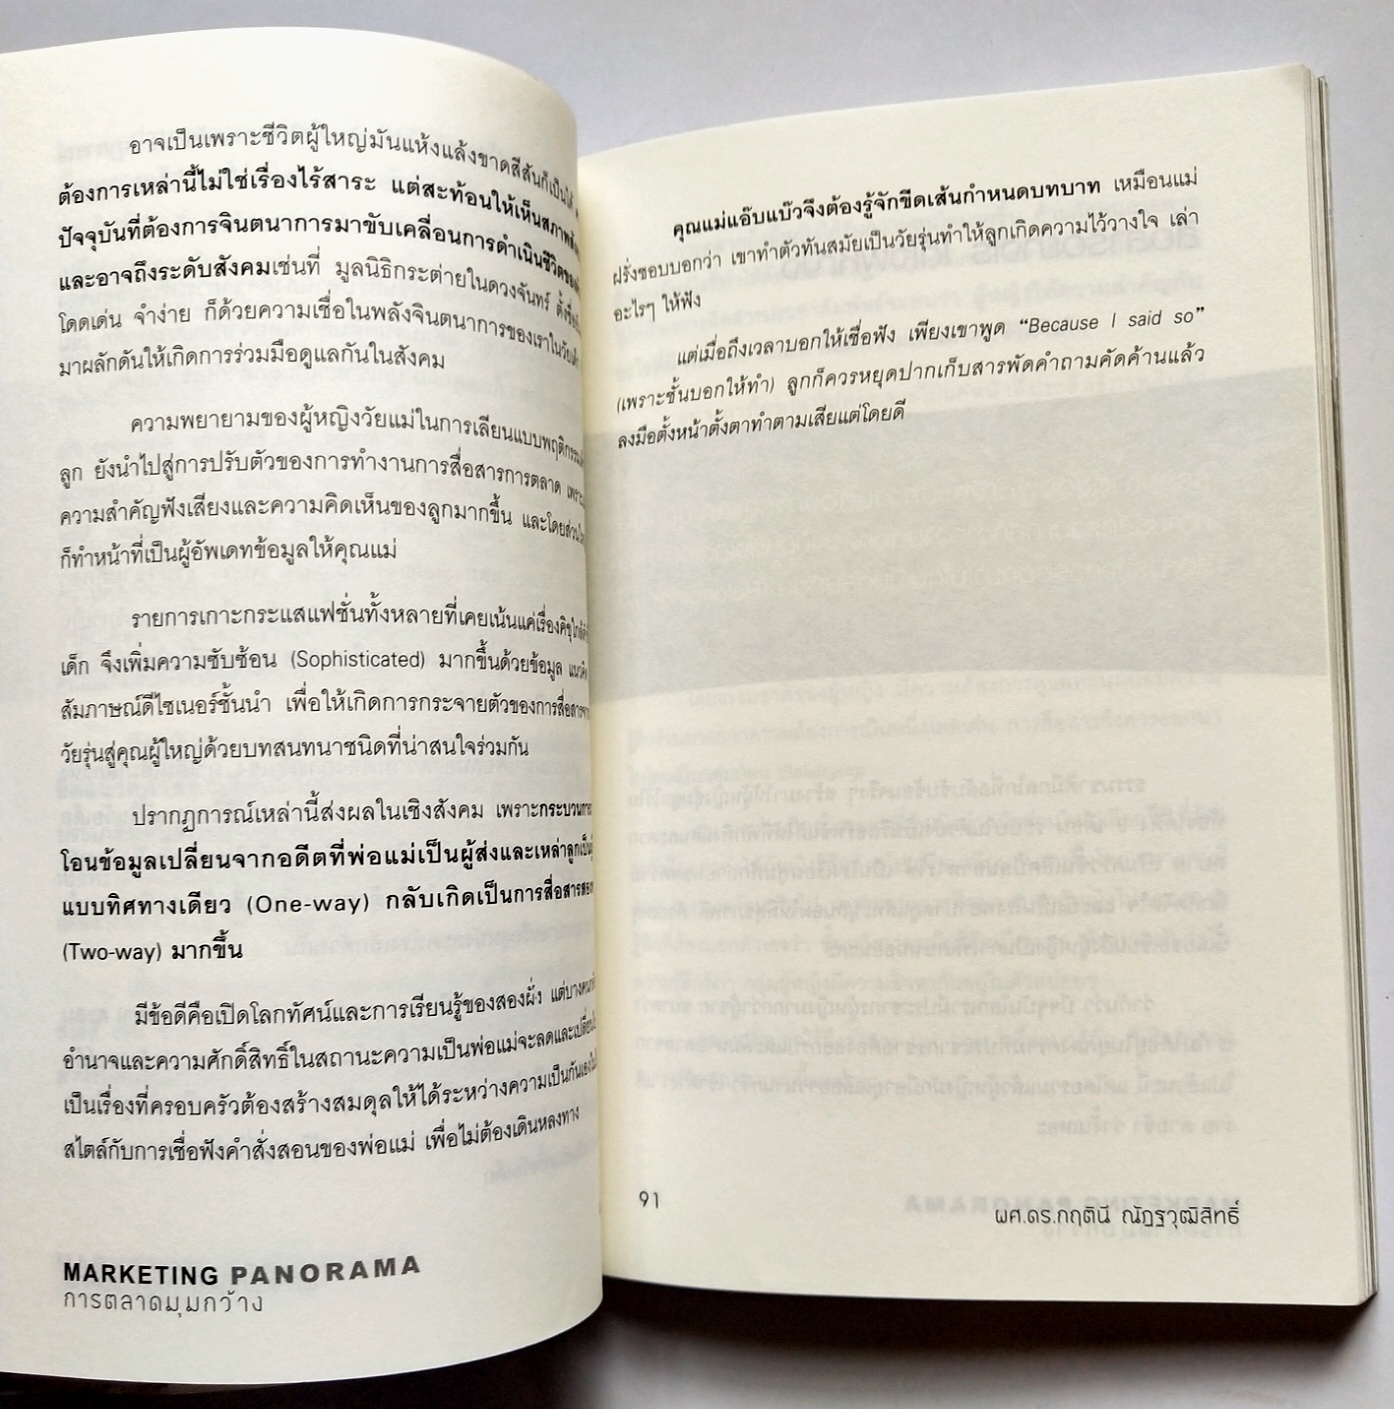 อาจเป็นเพราะชีวิตผู้ใหญ่มันแห้งแล้งขาดสีสันก็เป็นได้
ต้องการเหล่านี้ไม่ใช่เรื่องไร้สาระ แต่สะท้อนให้เห็นสภาพ
ปัจจุบันที่ต้องการจินตนาการมาขับเคลื่อนการดำเนินชีวิตของ
และอาจถึงระดับสังคมเช่นที่ มูลนิธิกระต่ายในดวงจันทร์ ตั้งชื่อ
โดดเด่น จำง่าย ก็ด้วยความเชื่อในพลังจินตนาการของเราในวัยเด็ก
มาผลักดันให้เกิดการร่วมมือดูแลกันในสังคม
ความพยายามของผู้หญิงวัยแม่ในการเลียนแบบพฤติกรรม
ลูก ยังนำไปสู่การปรับตัวของการทำงานการสื่อสารการตลาด เพราะ
ความสำคัญฟังเสียงและความคิดเห็นของลูกมากขึ้น และโดยส่วนใหญ่
ก็ทำหน้าที่เป็นผู้อัพเดทข้อมูลให้คุณแม่
รายการเกาะกระแสแฟชั่นทั้งหลายที่เคยเน้นแค่เรื่องคิขุ
เด็ก จึงเพิ่มความซับซ้อน (Sophisticated) มากขึ้นด้วยข้อมูล แนวคิด
สัมภาษณ์ดีไซเนอร์ชั้นนำ เพื่อให้เกิดการกระจายตัวของการสื่อสารจาก
วัยรุ่นสู่คุณผู้ใหญ่ด้วยบทสนทนาชนิดที่น่าสนใจร่วมกัน
ปรากฏการณ์เหล่านี้ส่งผลในเชิงสังคม เพราะกระบวนการ
โอนข้อมูลเปลี่ยนจากอดีตที่พ่อแม่เป็นผู้ส่งและเหล่าลูกเป็น
แบบทิศทางเดียว (One-way) กลับเกิดเป็นการสื่อสารสอง
(Two-way) มากขึ้น
มีข้อดีคือเปิดโลกทัศน์และการเรียนรู้ของสองฝั่ง แต่บาง
อำนาจและความศักดิ์สิทธิ์ในสถานะความเป็นพ่อแม่จะลดและเปลี่ยน
เป็นเรื่องที่ครอบครัวต้องสร้างสมดุลให้ได้ระหว่างความเป็นกันเอง
สไตล์กับการเชื่อฟังคำสั่งสอนของพ่อแม่ เพื่อไม่ต้องเดินหลงทาง
MARKETING PANORAMA
การตลาดมุมกว้าง
คุณแม่แอ๊บแบ๊วจึงต้องรู้จักขีดเส้นกำหนดบทบาท เหมือนแม่
ฝรั่งชอบบอกว่า เขาทำตัวทันสมัยเป็นวัยรุ่นทำให้ลูกเกิดความไว้วางใจ เล่า
อะไรๆ ให้ฟัง
แต่เมื่อถึงเวลาบอกให้เชื่อฟัง เพียงเขาพูด “Because I said so”
(เพราะชั้นบอกให้ทำ) ลูกก็ควรหยุดปากเก็บสารพัดคำถามคัดค้านแล้ว
ลงมือตั้งหน้าตั้งตาทำตามเสียแต่โดยดี
91
ผศ.ดร.กฤตินี ณัฏฐวุฒิสิทธิ์